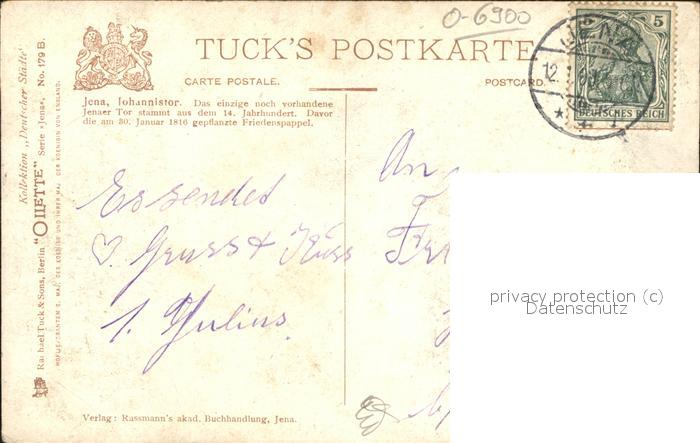 O-6900
TUCK'S POSTKARTE
CARTE POSTALE.
POSTCARD.
5
DEUTSCHES REICH
JENA
12.
Jena, Johannistor. Das einzige noch vorhandene
Jenaer Tor stammt aus dem 14. Jahrhundert. Davor
die am 30. Januar 1816 gepflanzte Friedenspappel.
Kollektion „Deutscher Städte"
Raphael Tuck & Sons, Berlin "OILETTE" Serie »Jena«. No. 179 B.
HOFLIEFERANTEN S. MAJ. DER KOENIGS UND IHRER MAJ. DER KOENIGIN VON ENGLAND.
Es sendet
Gruss & Kuss
Julius
An
privacy protection (c)
Datenschutz
Verlag: Rassmann's akad. Buchhandlung, Jena.